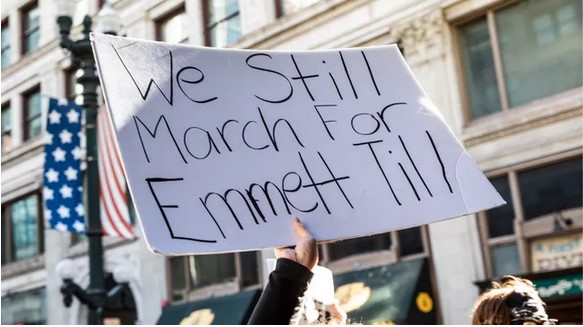 We Still
March For
Emmett Till